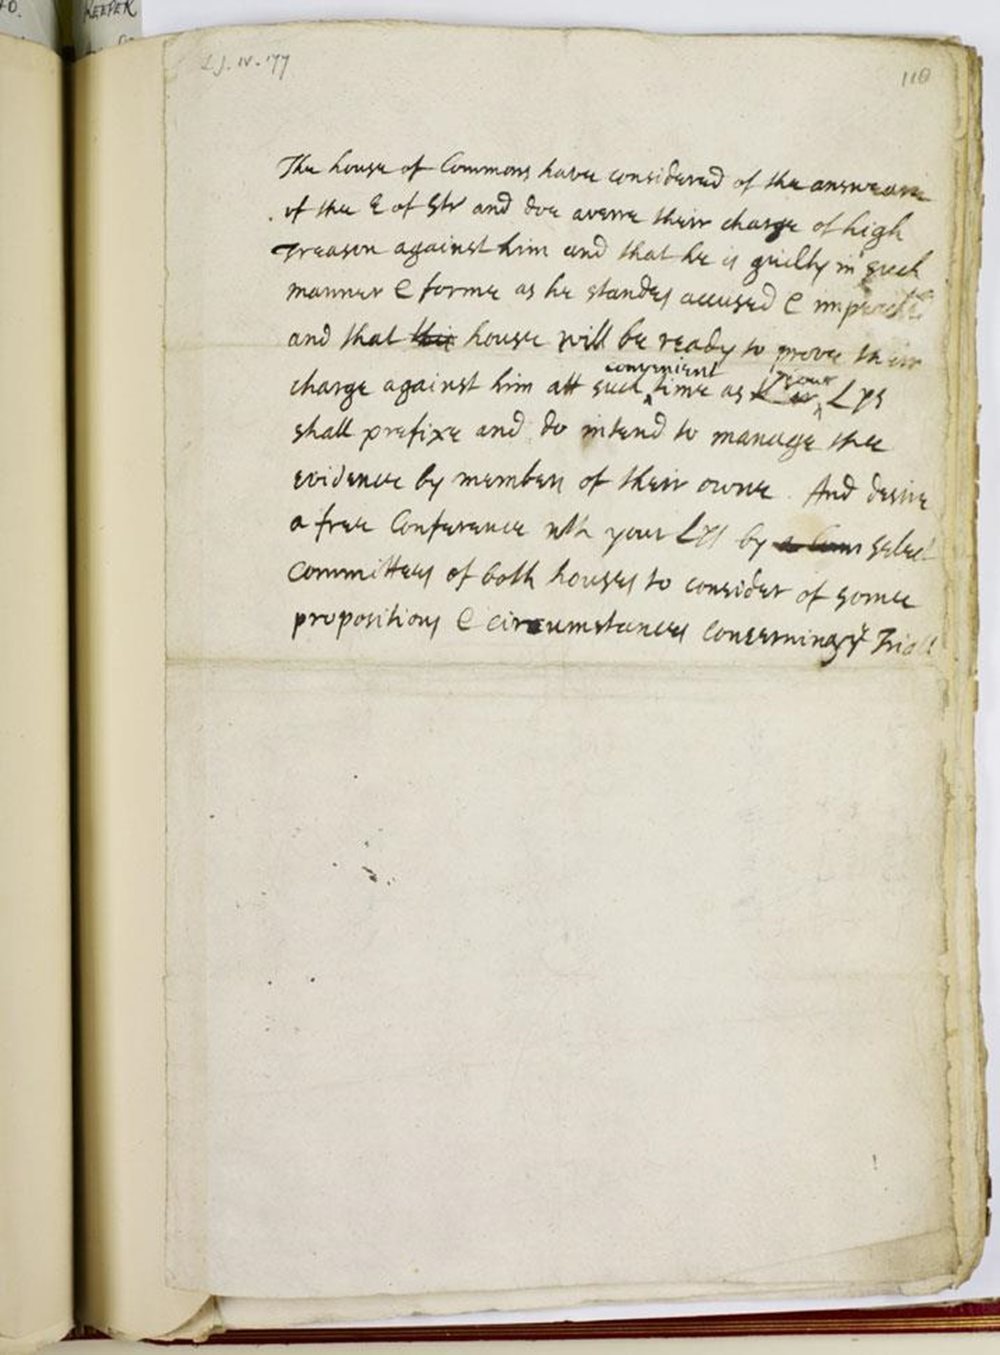 KEEPER
L J. IV. 77
110
The house of Commons have considered of the answeare
of the E of Str and doe averre their charge of high
Treason against him and that he is guilty in such
manner & forme as he standes accused & impeach
and that this house will be ready to prove their
convenient
charge against him att such ^ time as your ^ Lps
shall prefixe and do intend to manage the
evidence by members of their owne. And desire
a free Conference wth your Lps by a Com select
committees of both houses to consider of some
propositions & circumstances concerning ye Triall